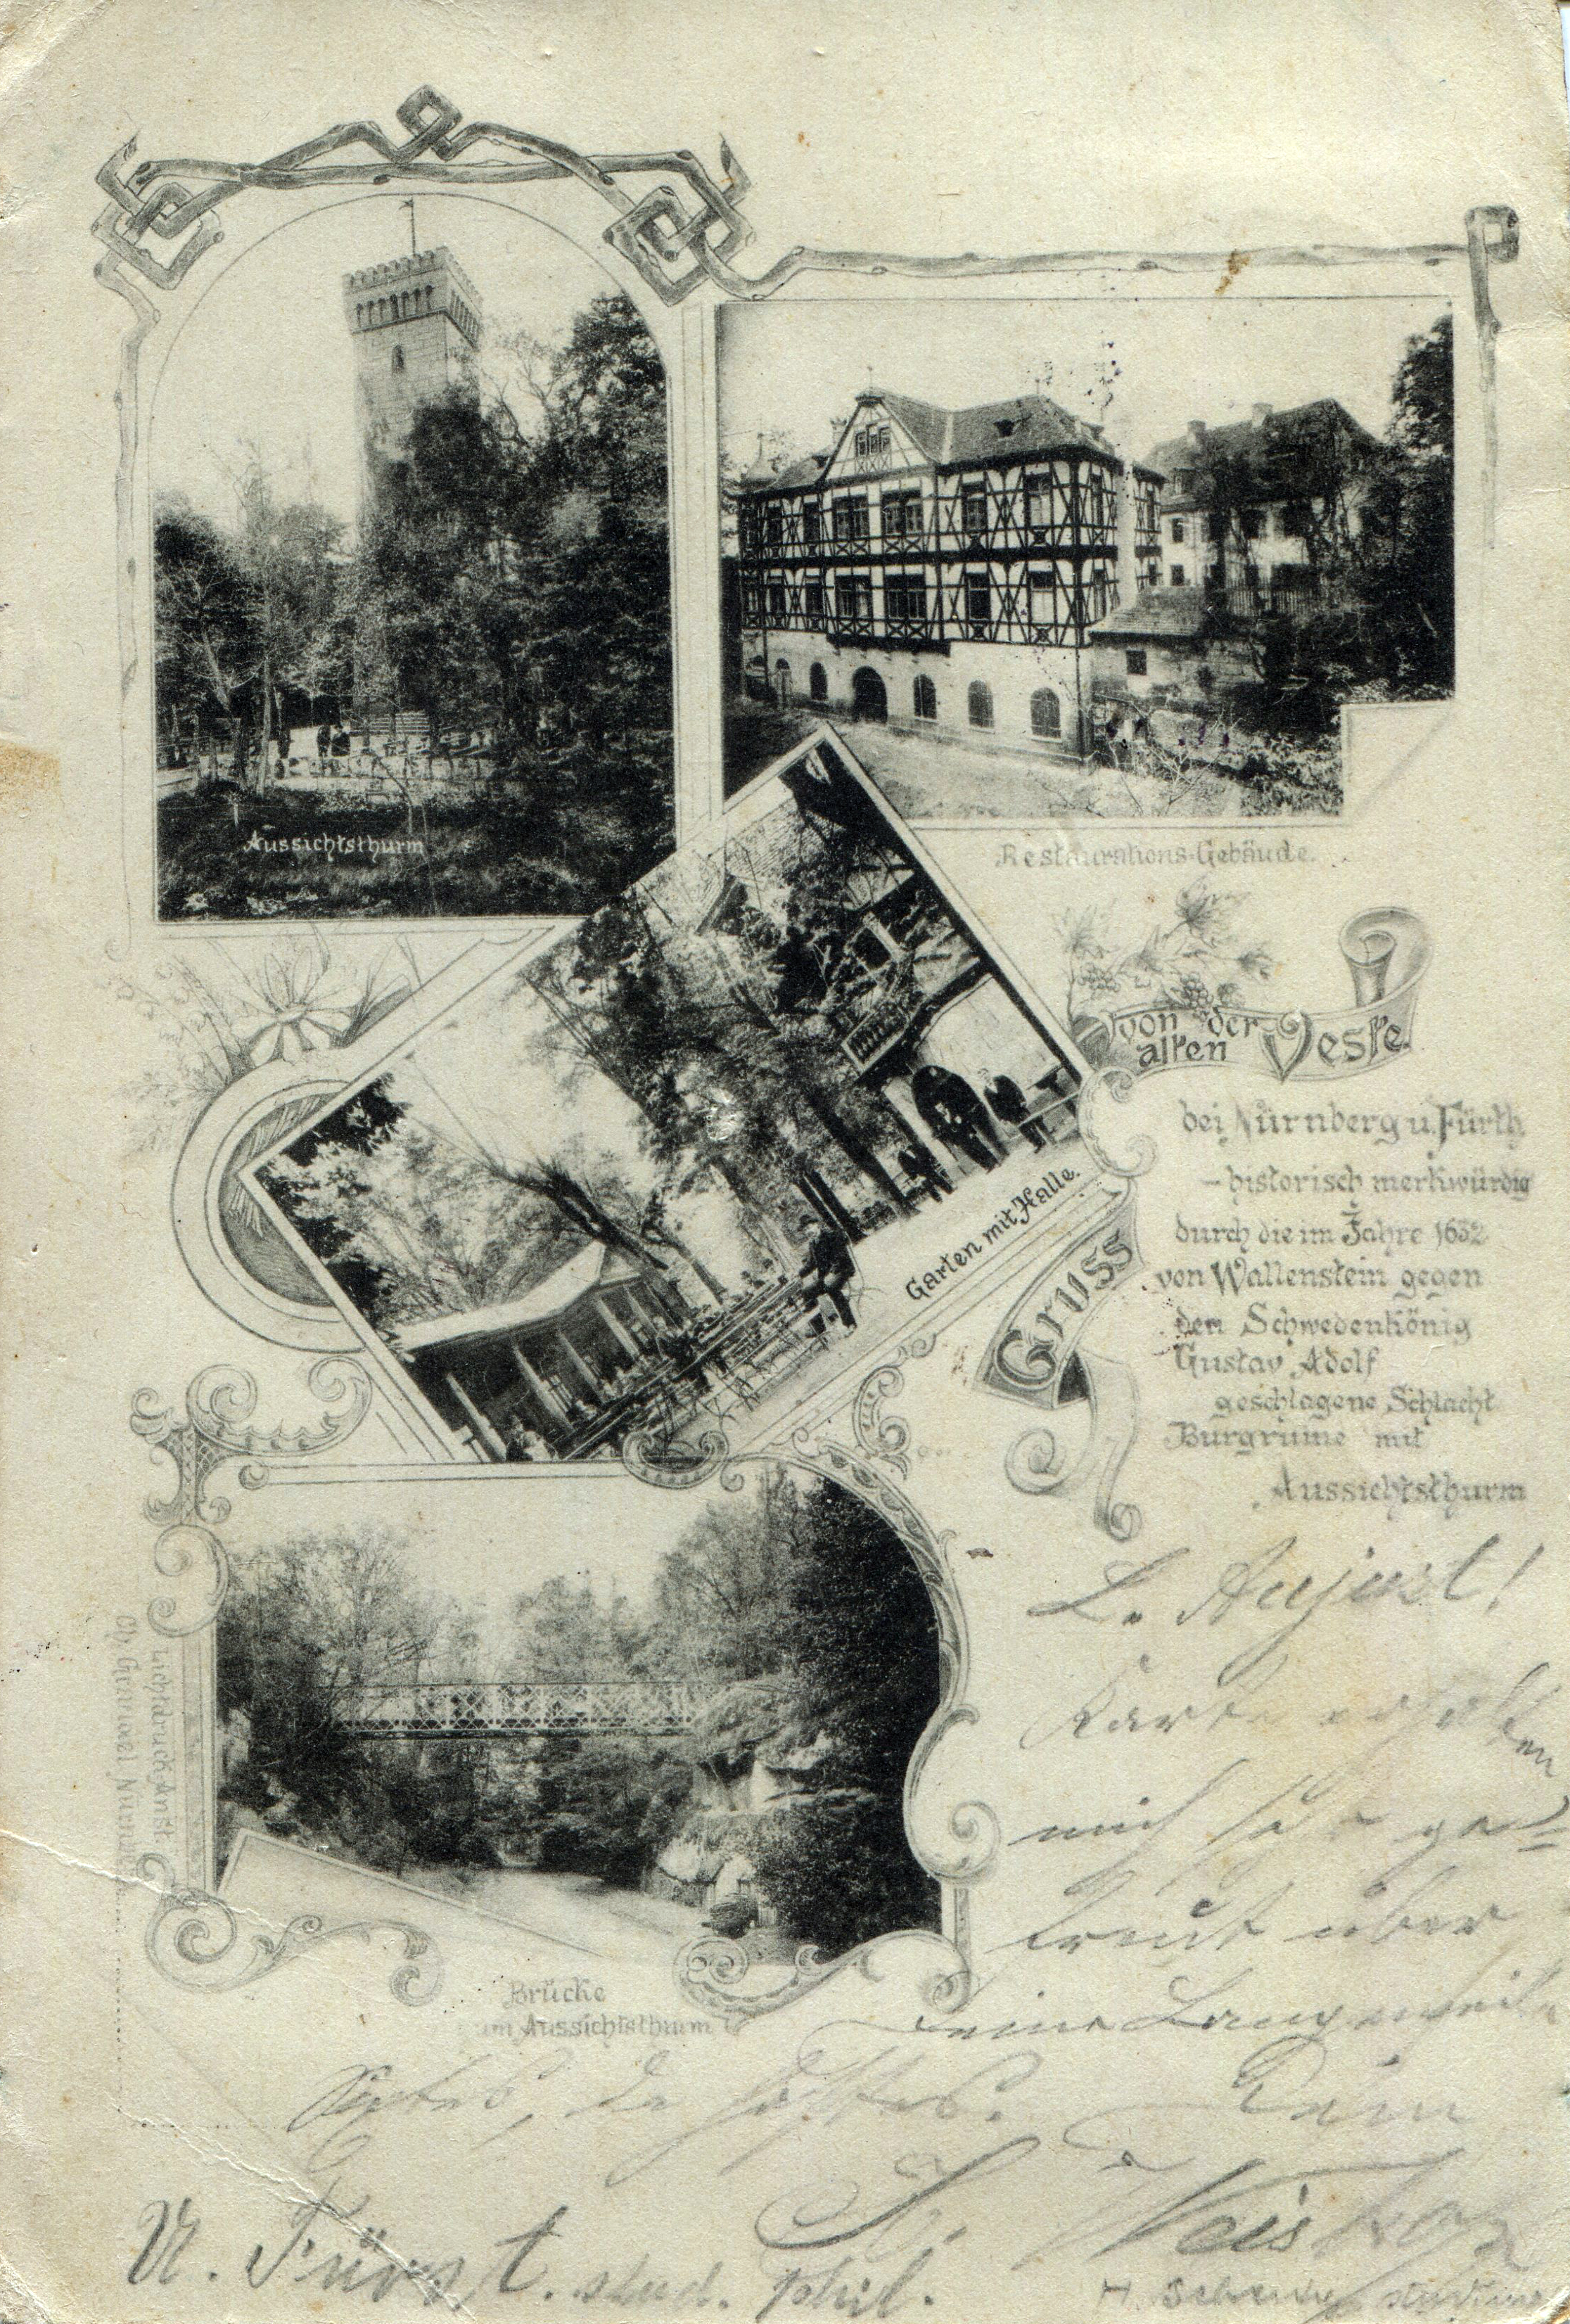 Aussichtsthurm
Restaurations-Gebäude.
Garten mit Halle.
Gruss
von der
alten Veste.
bei Nürnberg u. Fürth
- historisch merkwürdig
durch die im Jahre 1632
von Wallenstein gegen
den Schwedenkönig
Gustav Adolf
geschlagene Schlacht
Burgruine mit
Aussichtsthurm
Lichtdruck Anst.
Nürnb
Brücke
zum Aussichtsthurm
L. August!
Karte erhalten
mich sehr ge=
freut über
Deine Langeweile
Dein
U. Fürst. stud. phil.